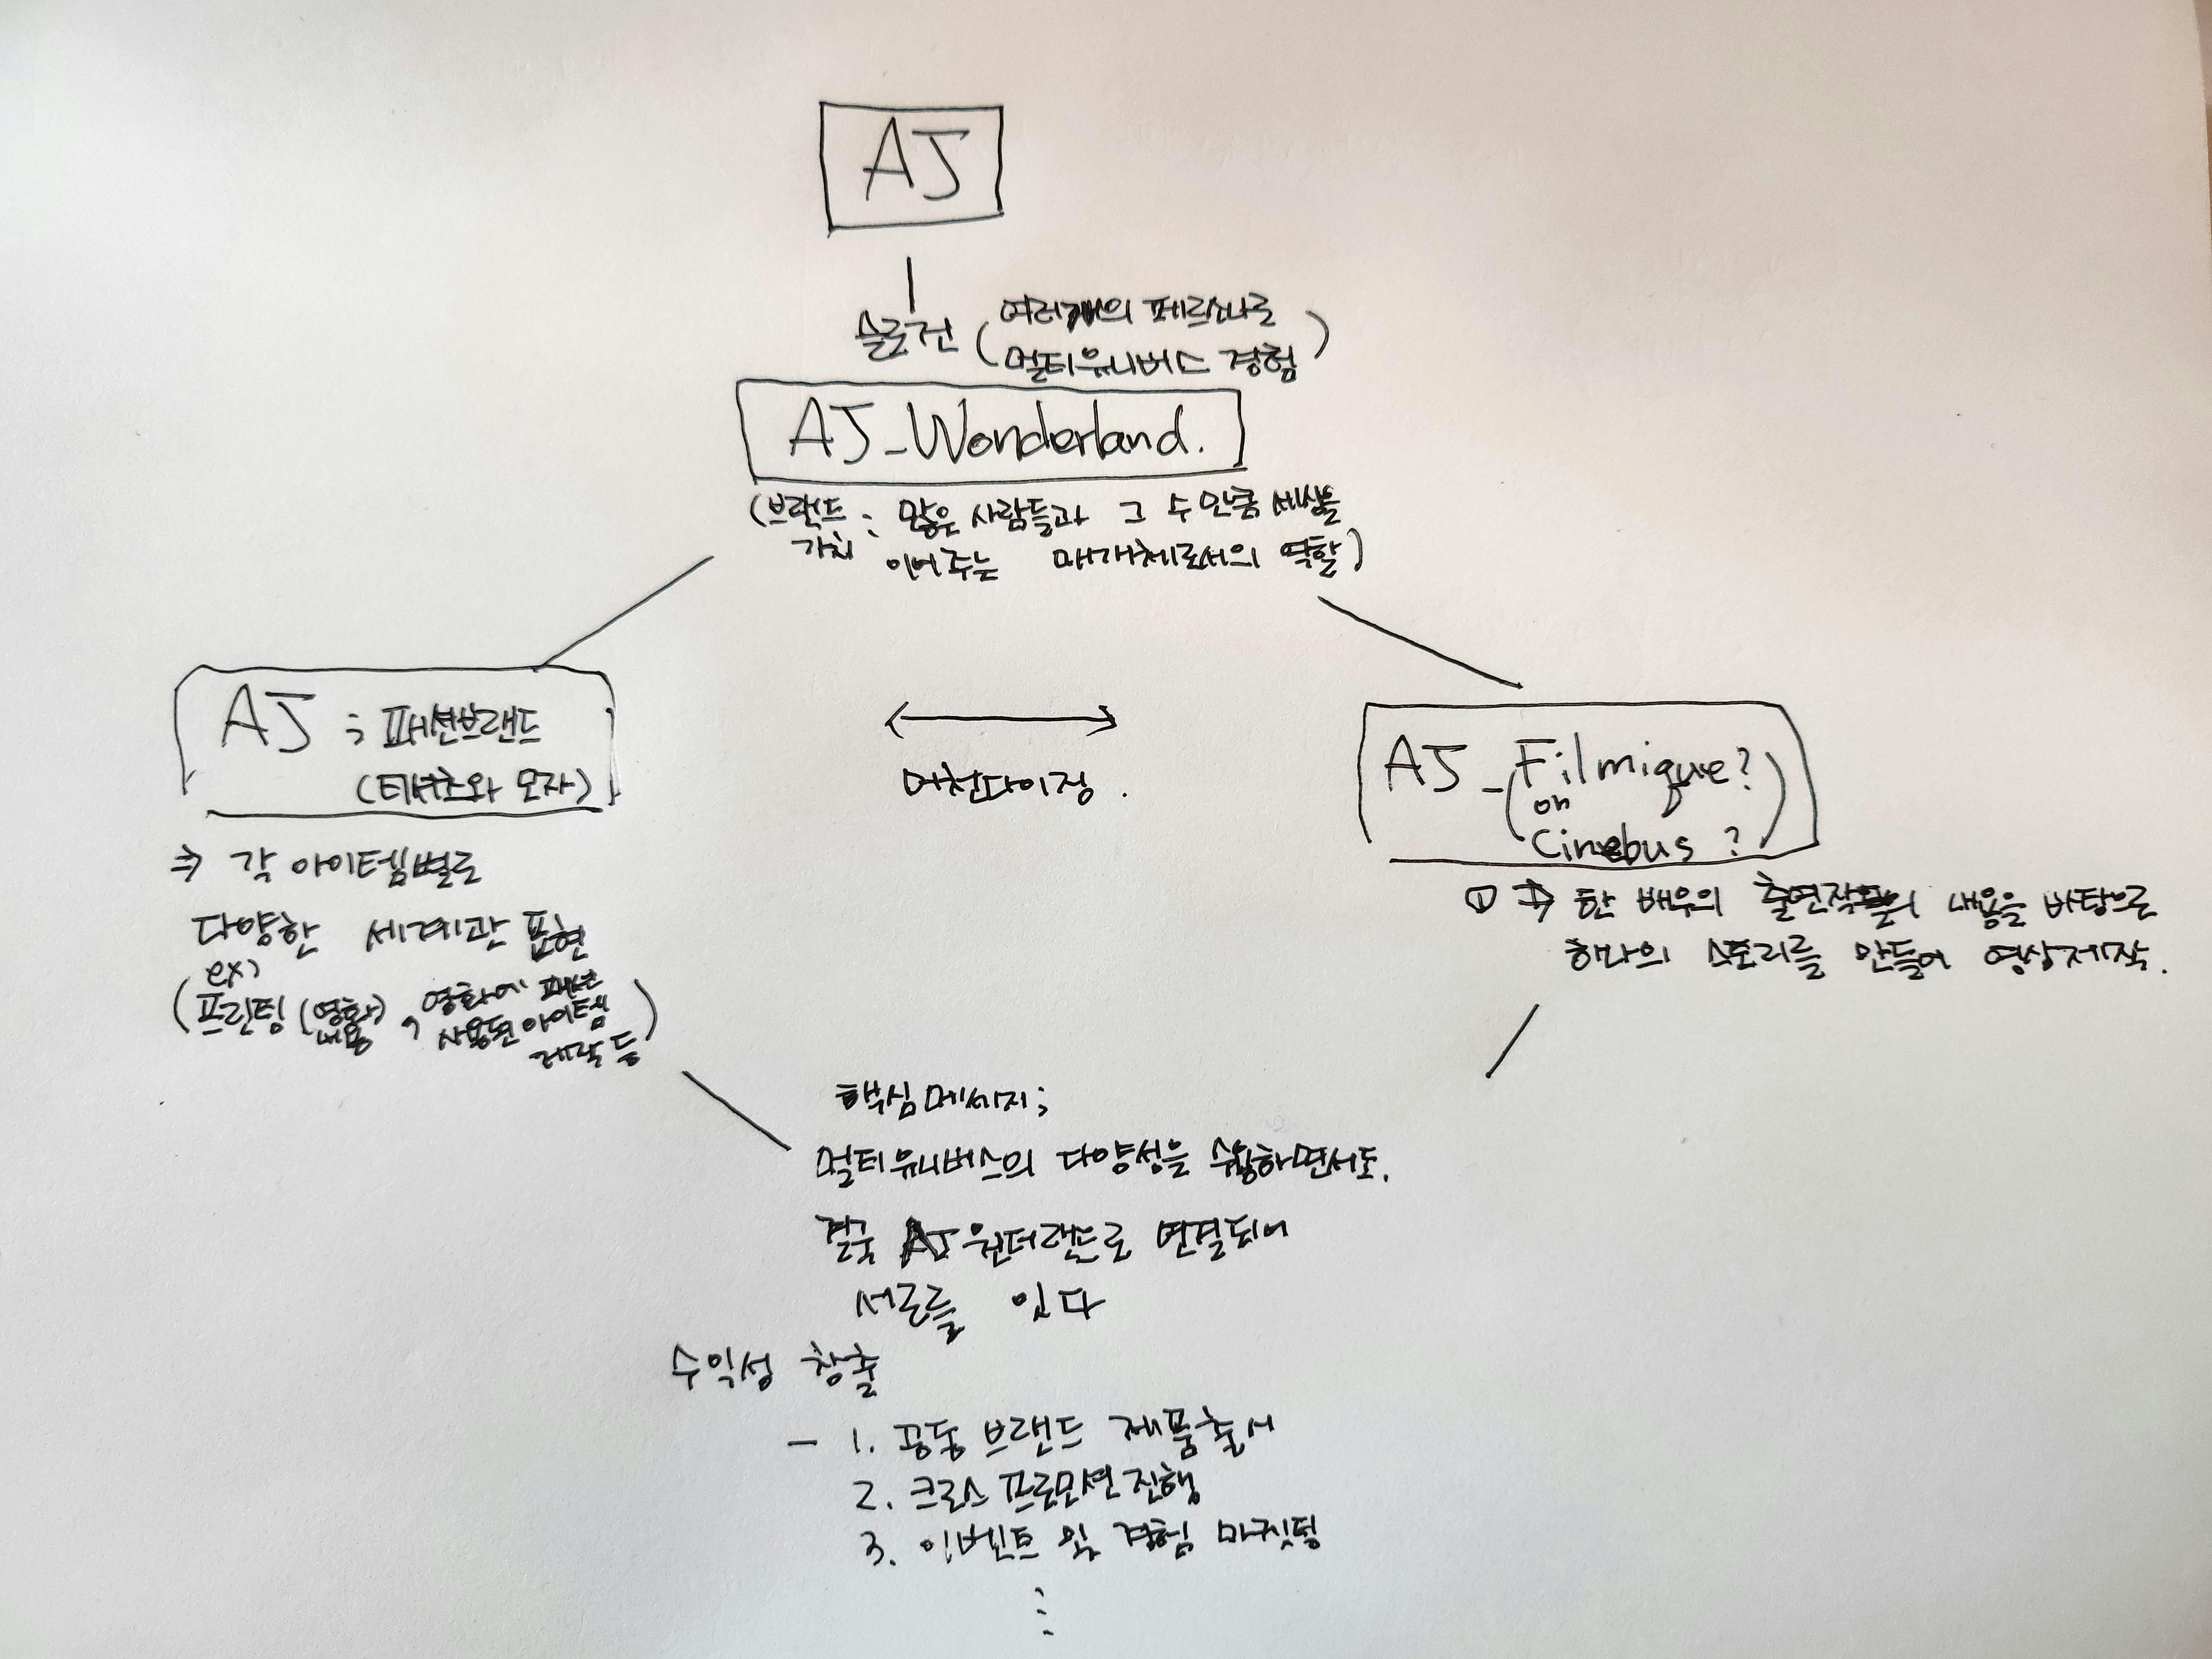 AJ
슬로건 (여러개의 페르소나로
멀티유니버스 경험)
AJ_Wonderland.
(브랜드 가치 : 많은 사람들과 그 수만큼 세상을
이어주는 매개체로서의 역할)
AJ ; 패션브랜드
(티셔츠와 모자)
⇒ 각 아이템별로
다양한 세계관 표현
ex)
(프린팅 (영화내용), 영화에 패션
사용된 아이템
제작 등)
머천다이징.
AJ_Filmique?
(or
Cinebus ?)
① ⇒ 한 배우의 출연작품의 내용을 바탕으로
하나의 스토리를 만들어 영상제작.
핵심메세지;
멀티유니버스의 다양성을 수용하면서도.
결국 AJ원더랜드로 연결되어
서로를 잇다
수익성 창출
- 1. 공동 브랜드 제품출시
2. 크로스 프로모션 진행
3. 이벤트 및 경험 마케팅
⋮